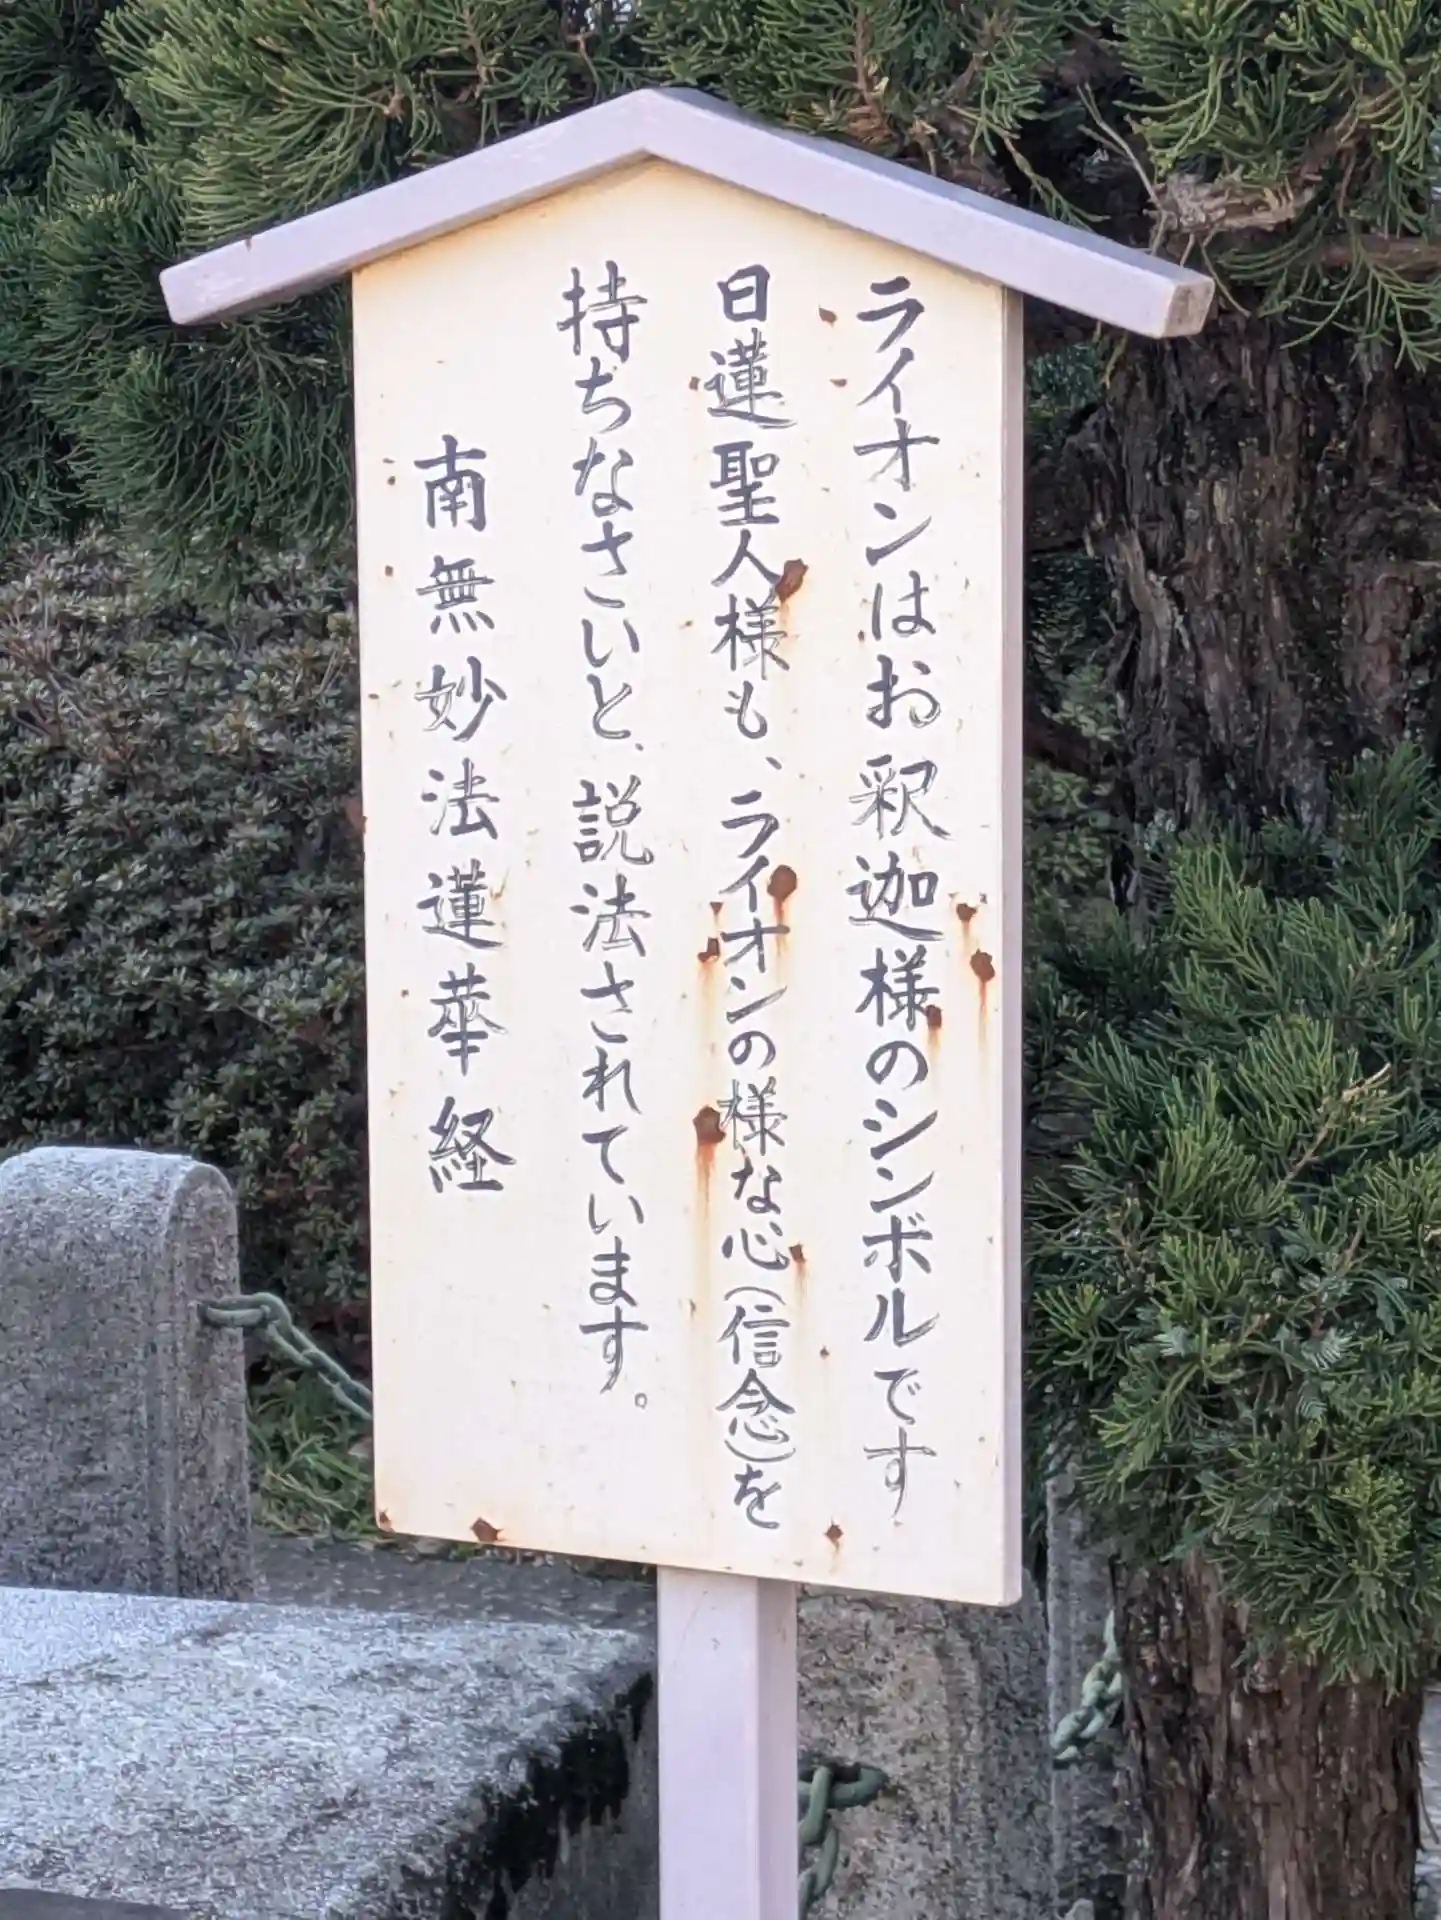 ライオンはお釈迦様のシンボルです
日蓮聖人様も、ライオンの様な心(信念)を
持ちなさいと、説法されています。
南無妙法蓮華経